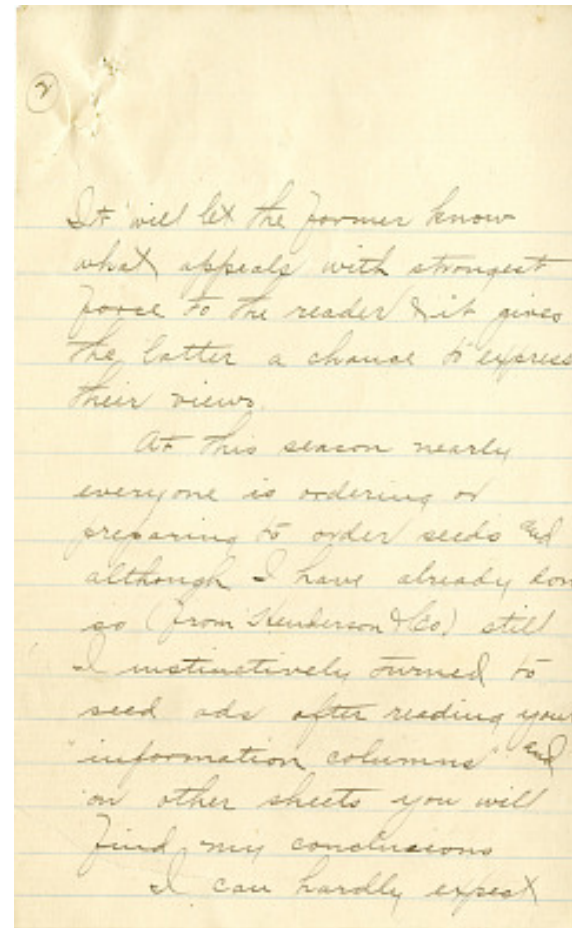 2
It will let the former know
what appeals with strongest
force to the reader & it gives
the latter a chance to express
their views.
At this season nearly
everyone is ordering or
preparing to order seeds and
although I have already don
so (from Henderson & Co) still
I instinctively turned to
seed ads after reading your
"information columns" and
on other sheets you will
find my conclusions
I can hardly expect